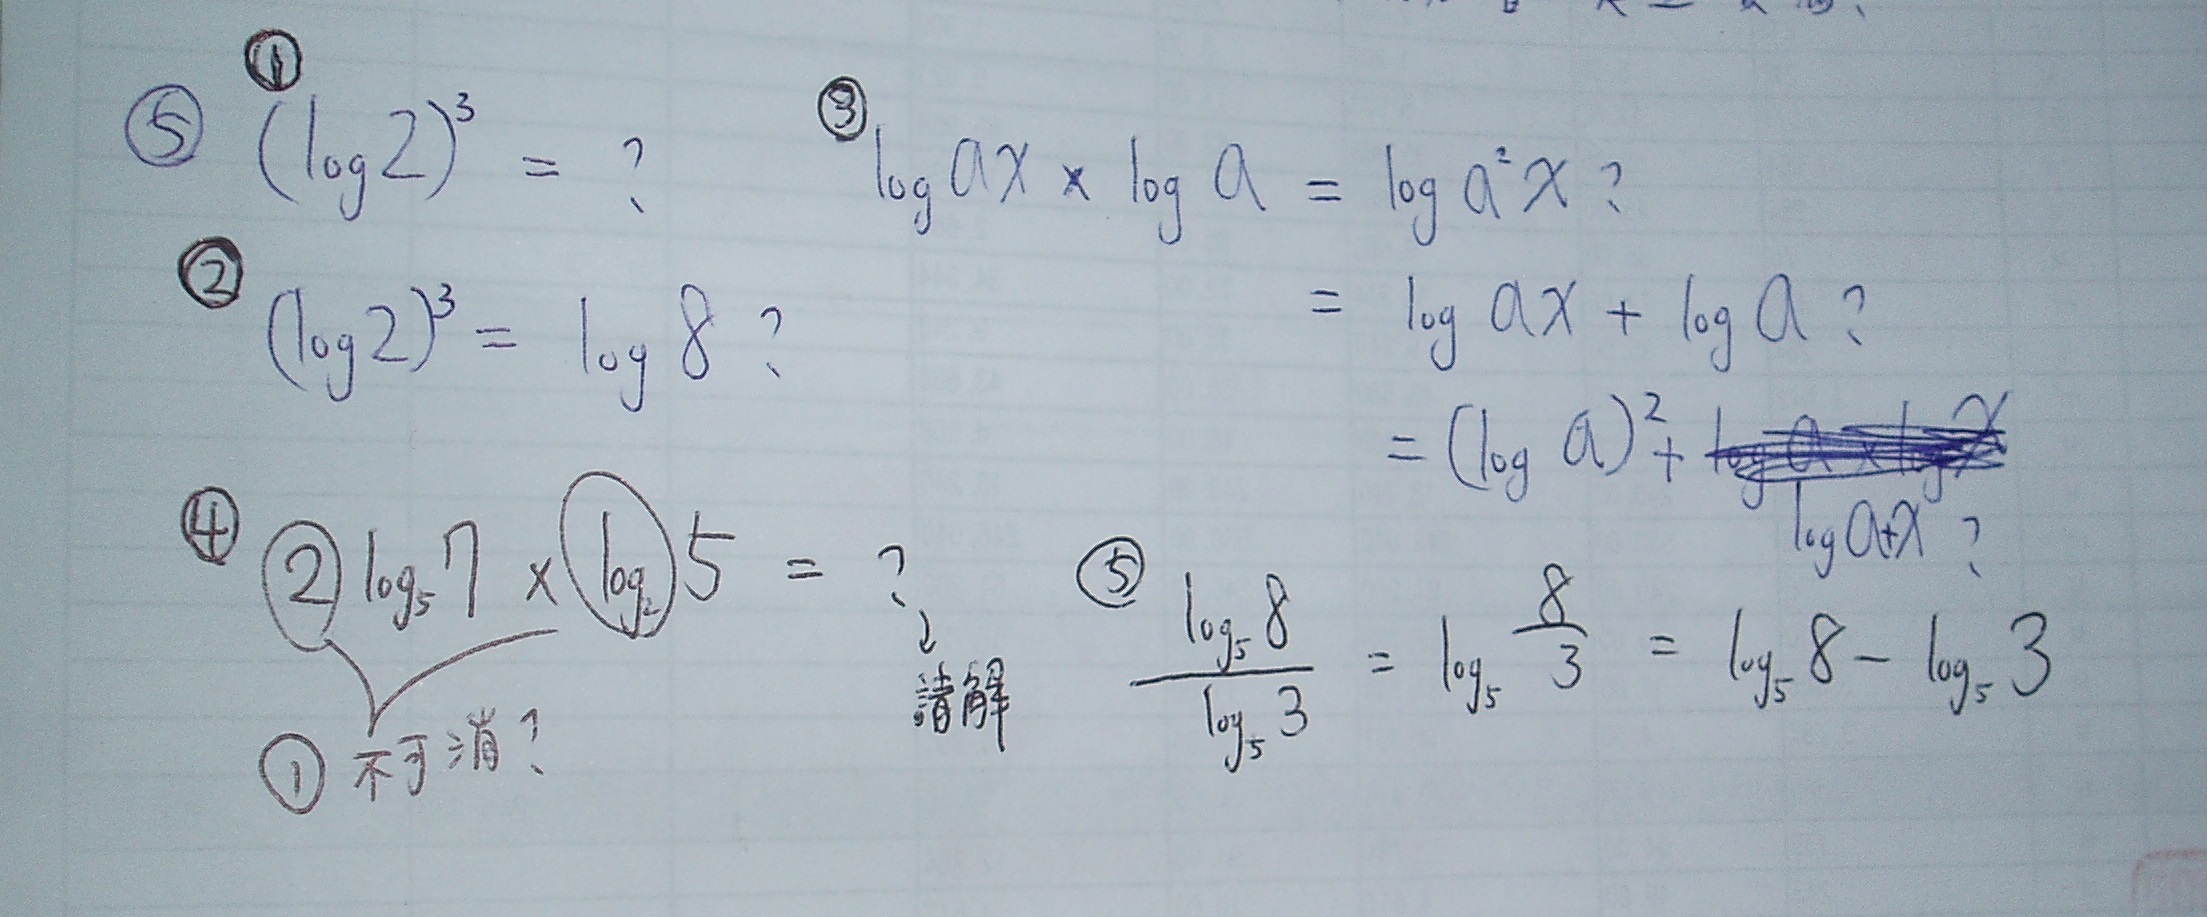 ⑤ ① (log2)³ = ?
② (log2)³ = log 8 ?
③ log ax × log a = log a²x ?
= log ax + log a ?
= (log a)² +
log a+x ?
④ 2 log₅7 × log₂5 = ?
↓
請解
① 不可消?
⑤ log₅8 / log₅3 = log₅ 8/3 = log₅8 - log₅3